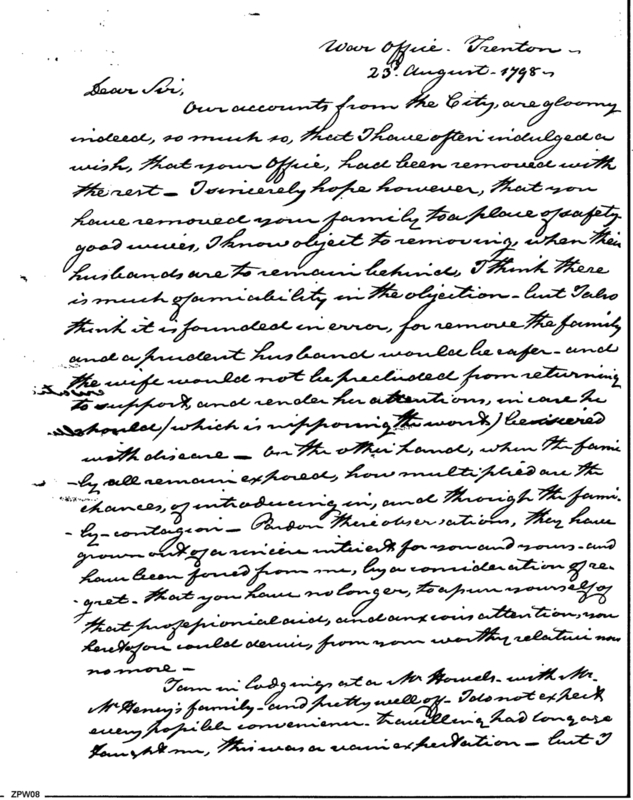 War Office. Trenton
23d. August. 1798
Dear Sir,
Our accounts from the City, are gloomy
indeed, so much so, that I have often indulged a
wish, that your Office, had been removed with
the rest — I sincerely hope however, that you
have removed your family to a place of safety
good wives, I know object to removing, when their
husbands are to remain behind, I think there
is much of amiability in the objection – but I also
think it is founded in error, for remove the family
and a prudent husband would be safer – and
the wife would not be precluded from returning
to support, and render her attentions, in case he
should (which is supposing the worst) be seized
with disease — On the other hand, when the fami
-ly all remain exposed, how multiplied are the
chances, of introducing in, and through the fami-
-ly – contagion — Pardon these observations, they have
grown out of a sincere interest for you and yours – and
have been forced from me, by a consideration of re-
-gret – that you have no longer, to assure yourself of
that professional aid, and anxious attention, you
heretofore could derive, from your worthy relative now
no more —
I am in lodgings at a Mr Howels – with Mr.
McHenry's family – and pretty well off – I do not expect
every possible convenience – travelling had long ago
taught me, this was a vain expectation — but I
ZPW08